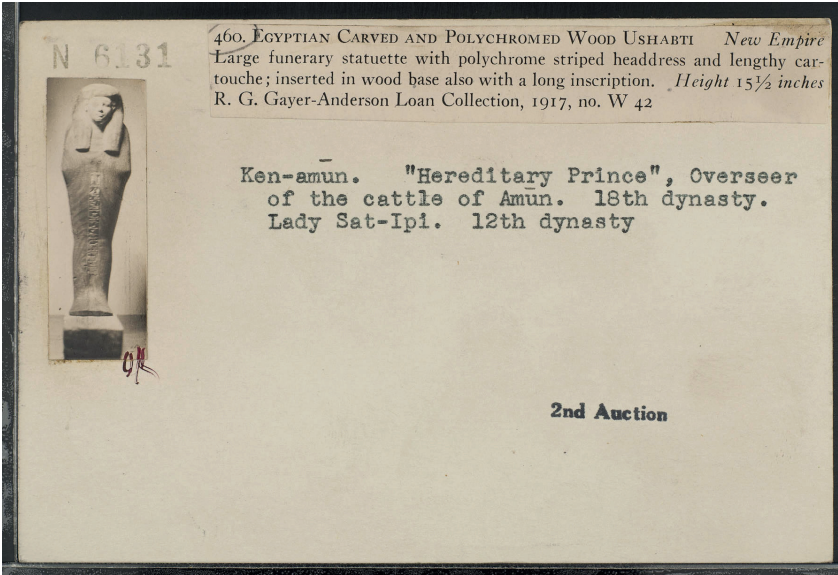 N 6131
460. EGYPTIAN CARVED AND POLYCHROMED WOOD USHABTI New Empire
Large funerary statuette with polychrome striped headdress and lengthy car-
touche; inserted in wood base also with a long inscription. Height 15½ inches
R. G. Gayer-Anderson Loan Collection, 1917, no. W 42
Ken-amūn. "Hereditary Prince", Overseer
of the cattle of Amūn. 18th dynasty.
Lady Sat-Ipi. 12th dynasty
2nd Auction